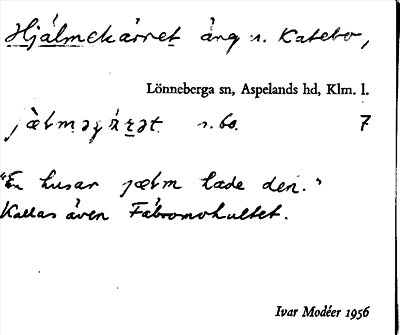 Hjálmekärret äng n. Katebo,
Lönneberga sn, Aspelands hd, Klm. l.
n. bo. 7
"En husar jælm lade den."
Kallas även Fabromohultet.
Ivar Modéer 1956